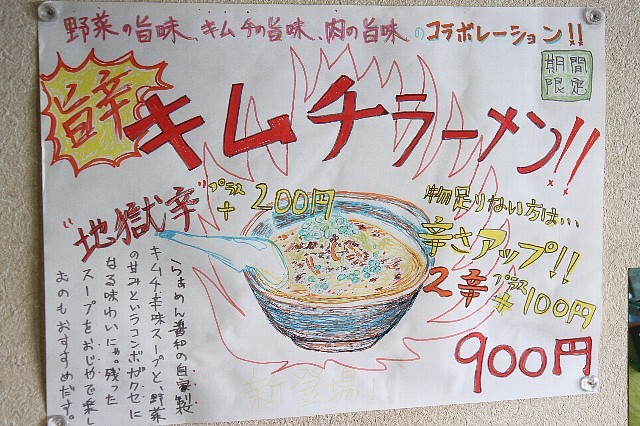 野菜の旨味、キムチの旨味、肉の旨味のコラボレーション!!
期間
限定
旨辛
キムチラーメン!!
"地獄辛"プラス+200円
物足りない方は…
辛さアップ!!
2辛プラス+100円
900円
らぁめん善和の自家製
キムチ+辛味スープと、野菜
の甘みというコンボがクセに
なる味わいにゃ。残った
スープをおじやで楽し
むのもおすすめだす。
新登場!